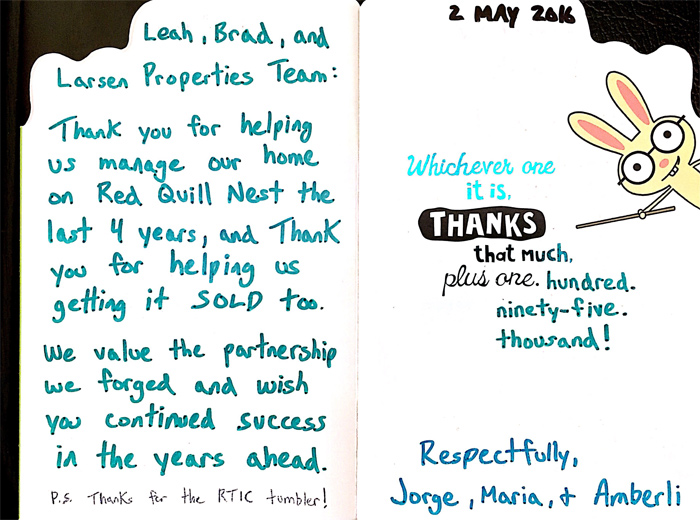 Leah, Brad, and
Larsen Properties Team:
Thank you for helping
us manage our home
on Red Quill Nest the
last 4 years, and Thank
you for helping us
getting it SOLD too.
We value the partnership
we forged and wish
you continued success
in the years ahead.
P.S. Thanks for the RTIC tumbler!
2 MAY 2016
Whichever one
it is,
THANKS
that much,
plus one. hundred.
ninety-five.
thousand!
Respectfully,
Jorge, Maria, & Amberli